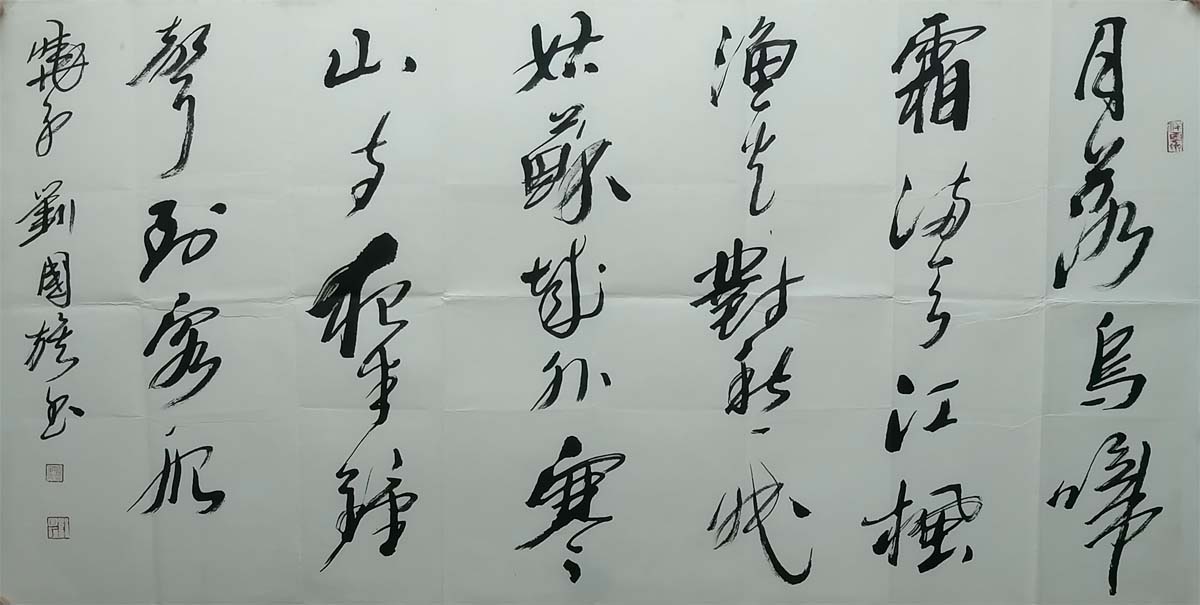 月落烏啼
霜滿天江楓
漁火對愁眠
姑蘇城外寒
山寺夜半鍾
聲到客船
劉國书